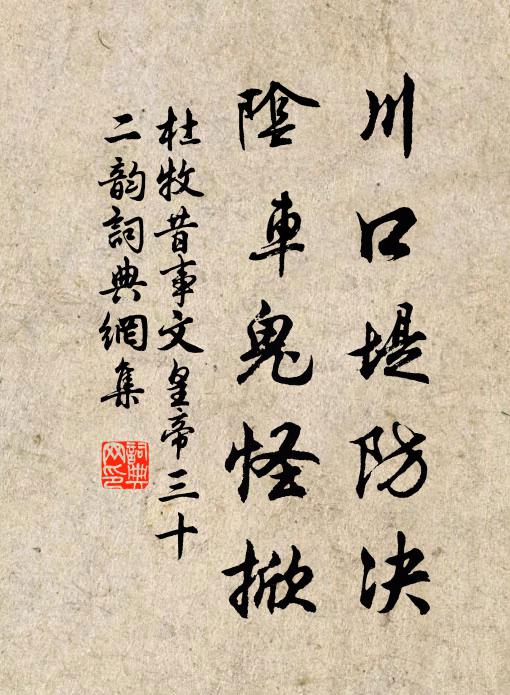 川口堤防決
陰車鬼怪掀
杜牧昔事文皇帝三十
二韵詞典網集
詞典网印